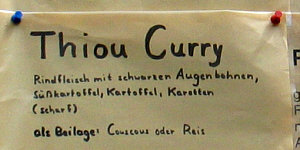 Thiou Curry
Rindfleisch mit schwarzen Augenbohnen,
Süßkartoffel, Kartoffel, Karotten
(scharf)
als Beilage: Couscous oder Reis